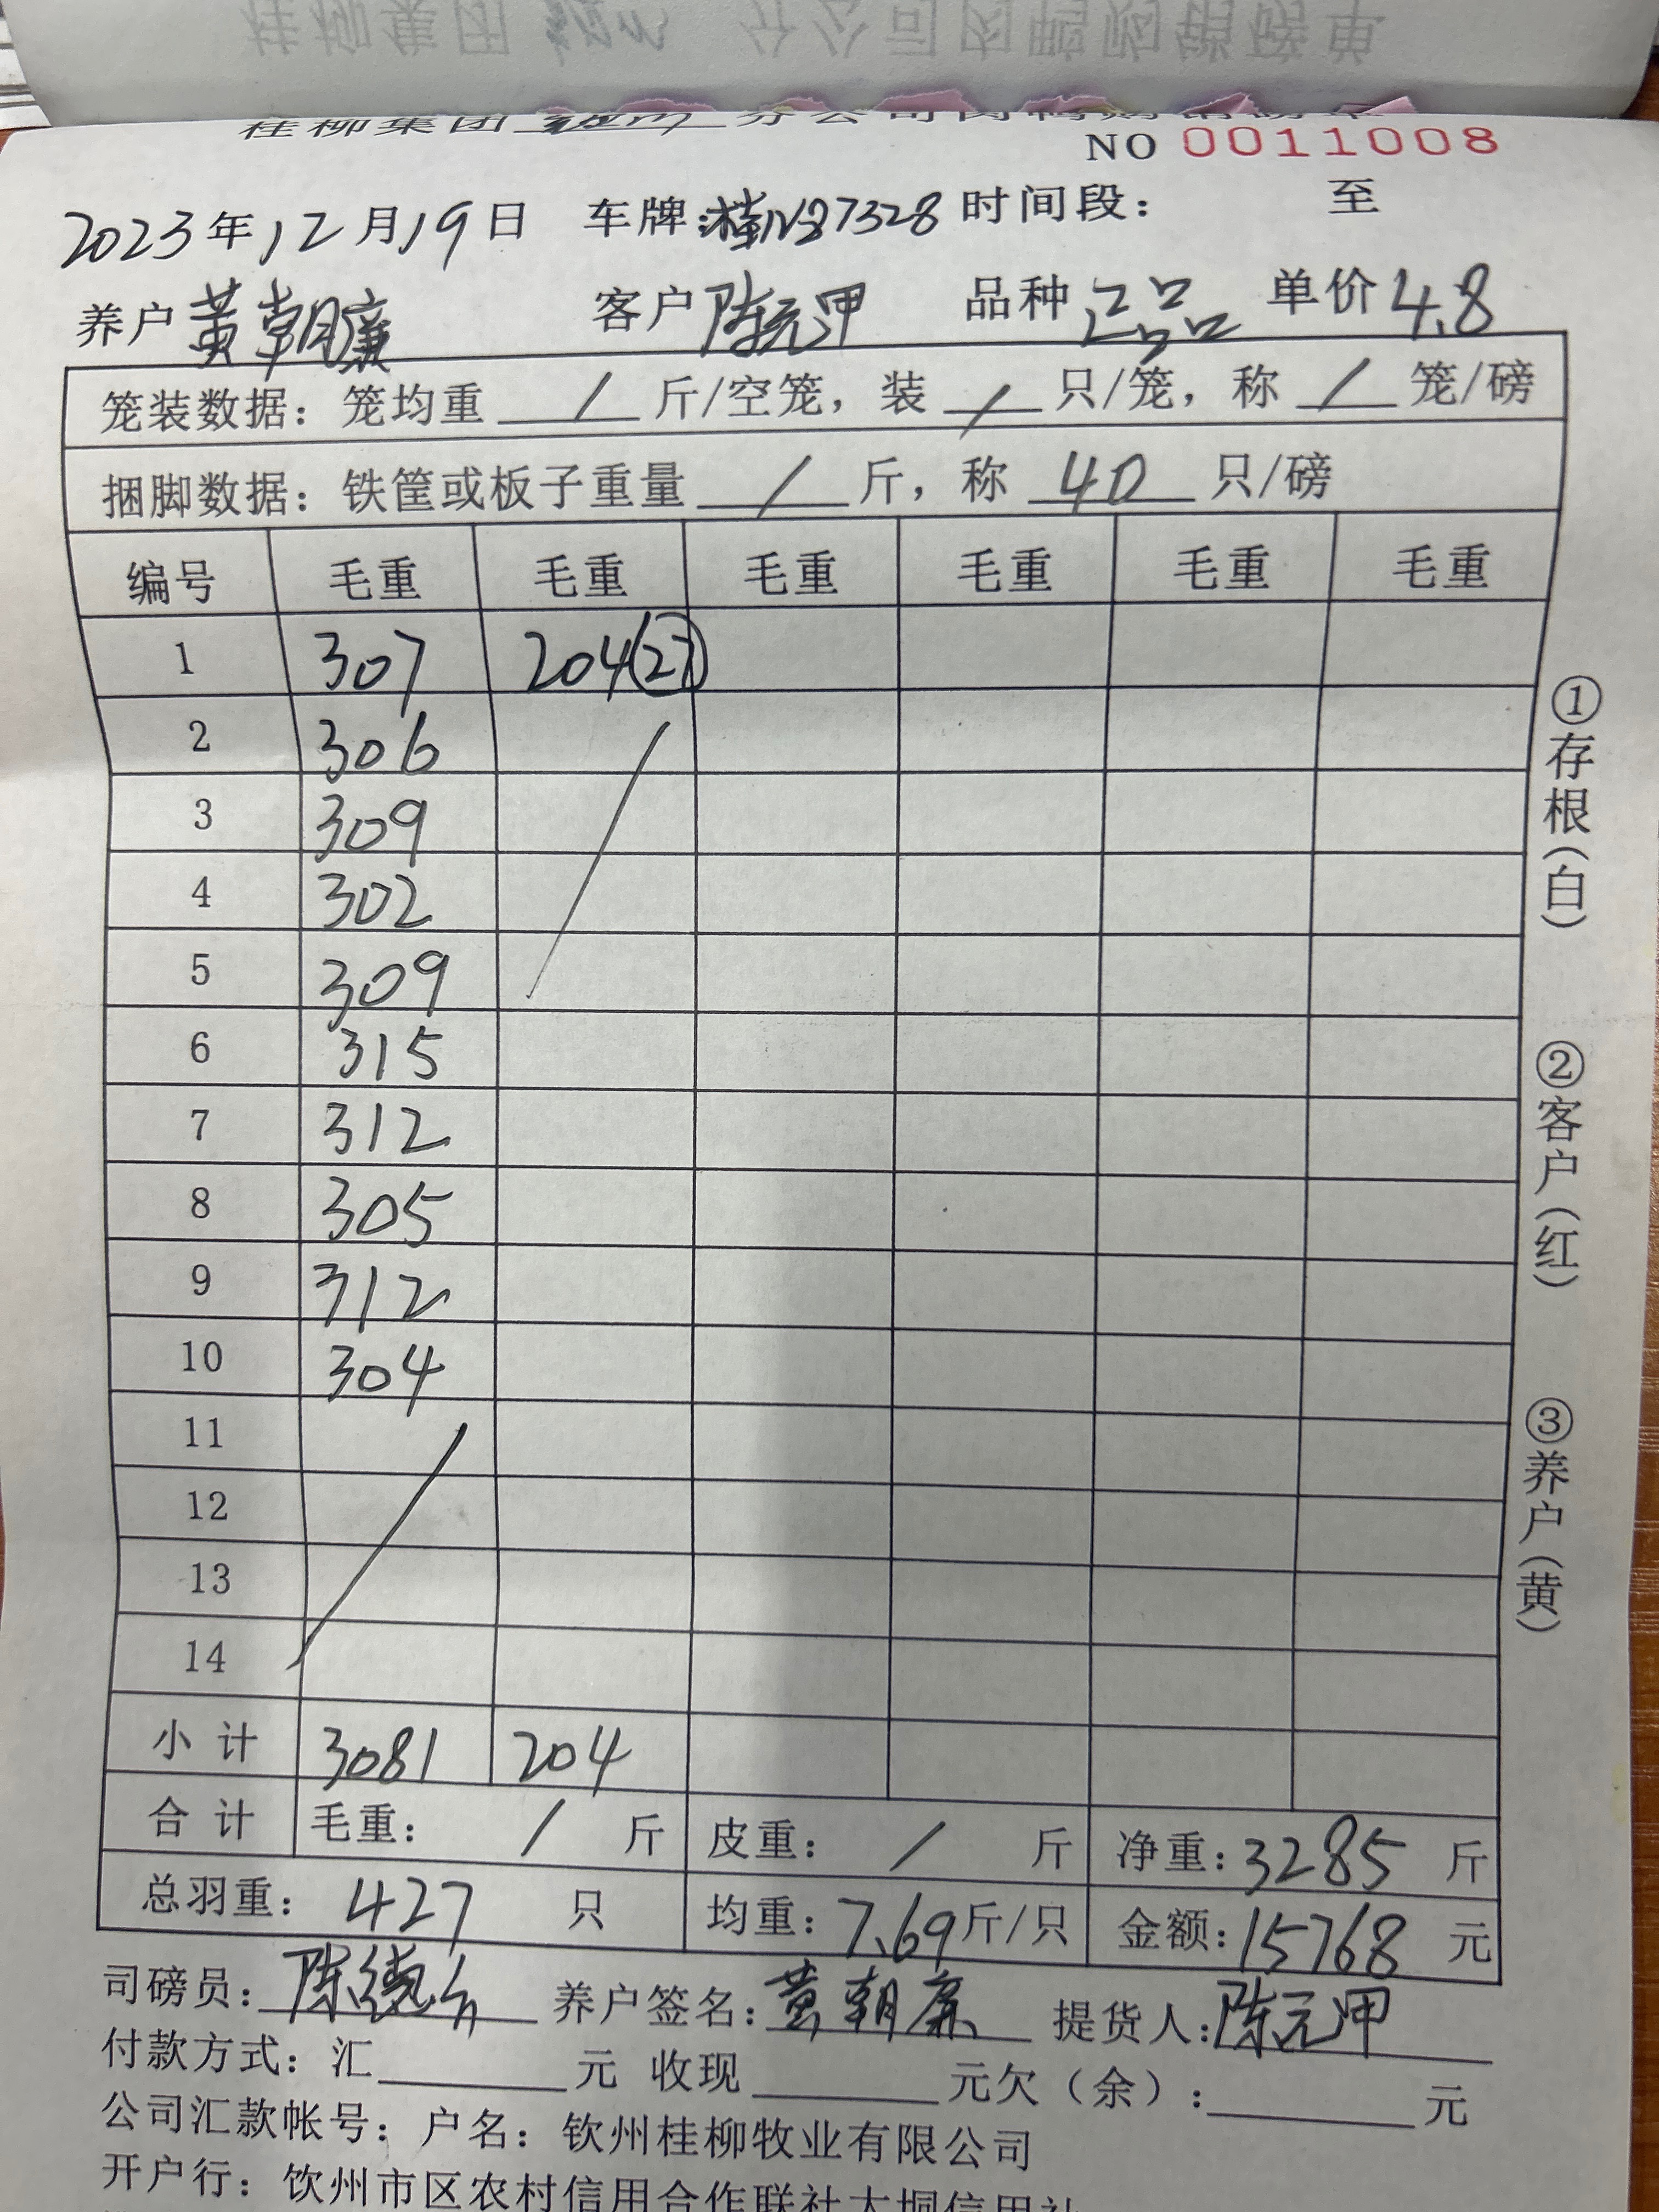 桂柳集团 分公司肉鸭购销磅单
NO 0011008
2023年12月19日 车牌: 7328 时间段: 至
养户 黄朝廉 客户 陈元甲 品种 正品 单价 4.8
笼装数据: 笼均重 / 斤/空笼, 装 / 只/笼, 称 / 笼/磅
捆脚数据: 铁筐或板子重量 / 斤, 称 40 只/磅
编号 毛重 毛重 毛重 毛重 毛重 毛重
1 307 204(27)
2 306
3 309
4 302
5 309
6 315
7 312
8 305
9 312
10 304
11
12
13
14
小计 3081 204
合计 毛重: / 斤 皮重: / 斤 净重: 3285 斤
总羽重: 427 只 均重: 7.69 斤/只 金额: 15768 元
司磅员: 养户签名: 黄朝廉 提货人: 陈元甲
付款方式: 汇 元 收现 元欠(余): 元
公司汇款帐号: 户名: 钦州桂柳牧业有限公司
开户行: 钦州市区农村信用合作联社大垌信用社
①存根(白)
②客户(红)
③养户(黄)